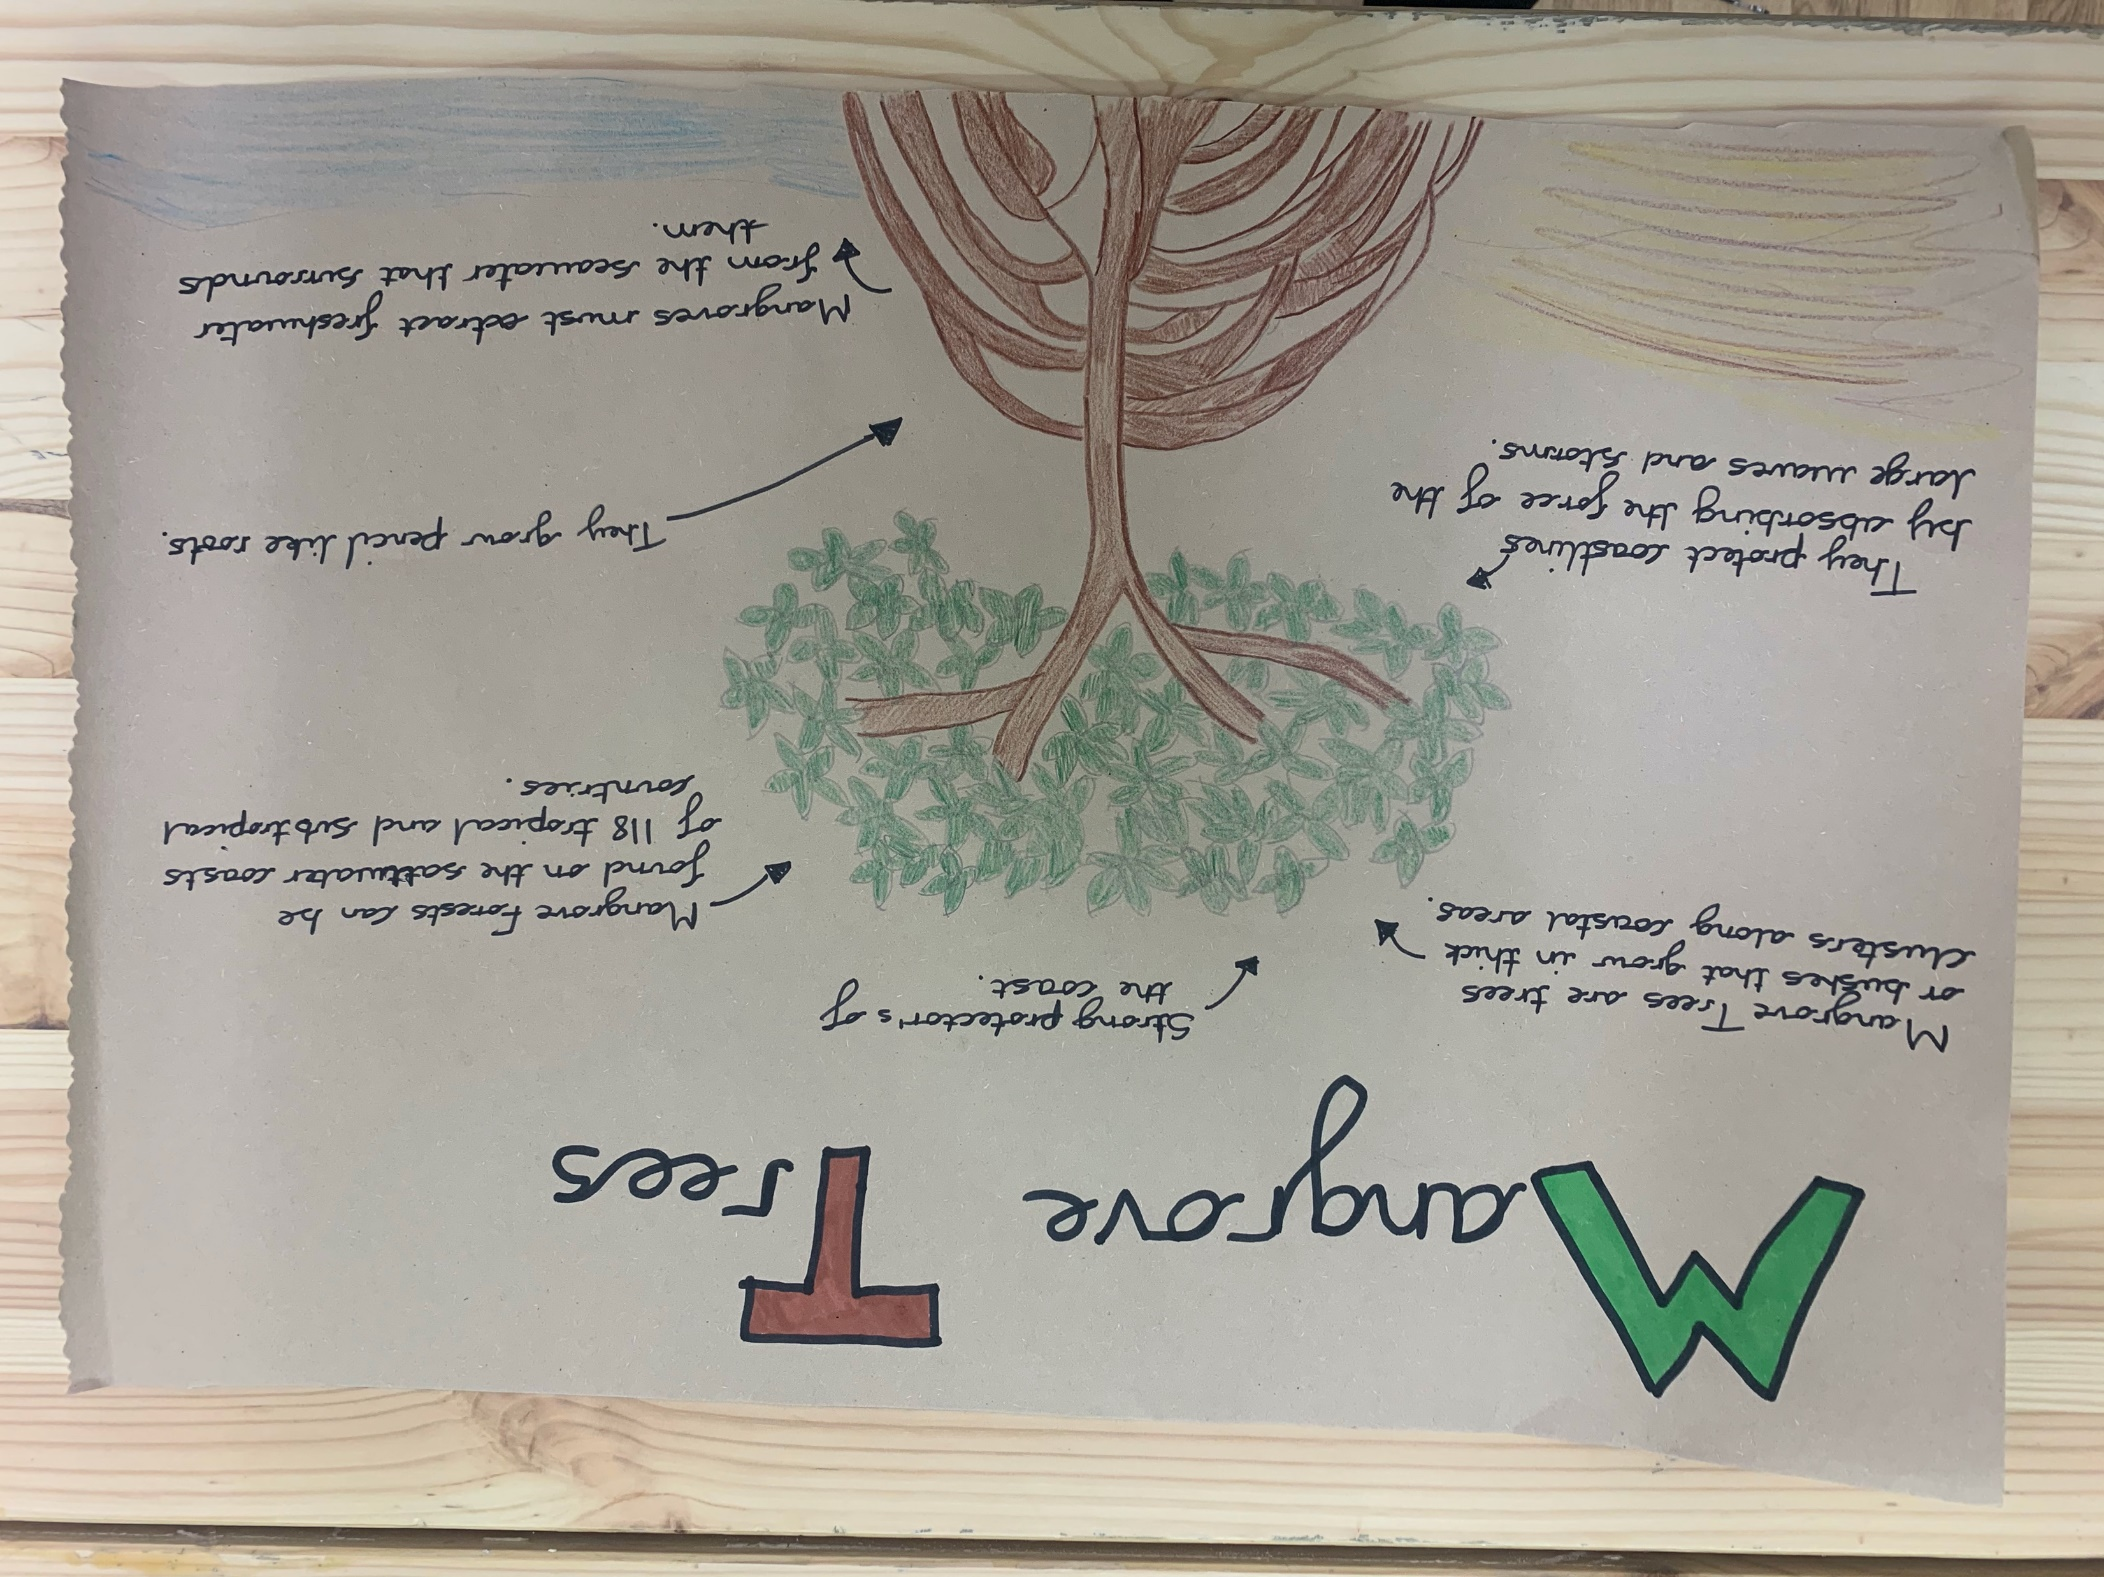 Mangrove Trees
Mangrove Trees are trees
or bushes that grow in thick
clusters along coastal areas.
Strong protector's of
the coast.
Mangrove Forests can be
found on the saltwater coasts
of 118 tropical and subtropical
countries.
They protect coastlines
by absorbing the force of the
large waves and storms.
They grow pencil like roots.
Mangroves must extract freshwater
from the seawater that surrounds
them.